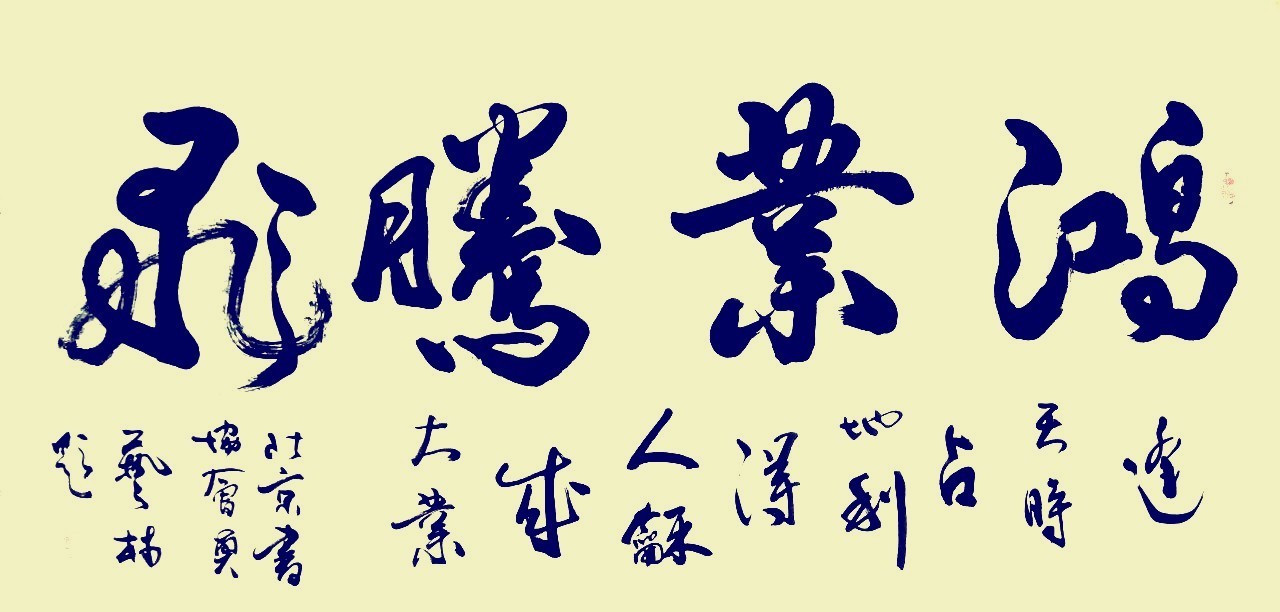 鴻業騰飛
逢
天時
占
地利
得
人龢
成
大業
北京書
協會員
藝林
題